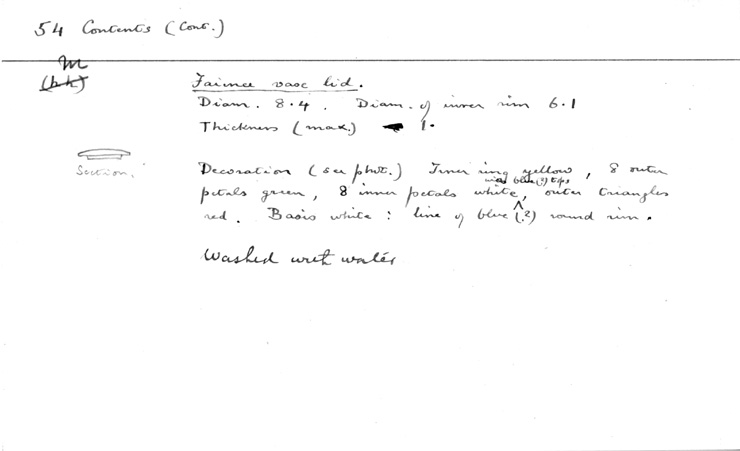 54 Contents (Cont.)
m
(hh)
Faience vase lid.
Diam. 8.4. Diam. of inner rim 6.1
Thickness (max.) 1.
Section.
Decoration (see phot.) Inner ring yellow, 8 outer
with blue (?) tips
petals green, 8 inner petals white, outer triangles
red. Basis white: line of blue (?) round rim.
Washed with water